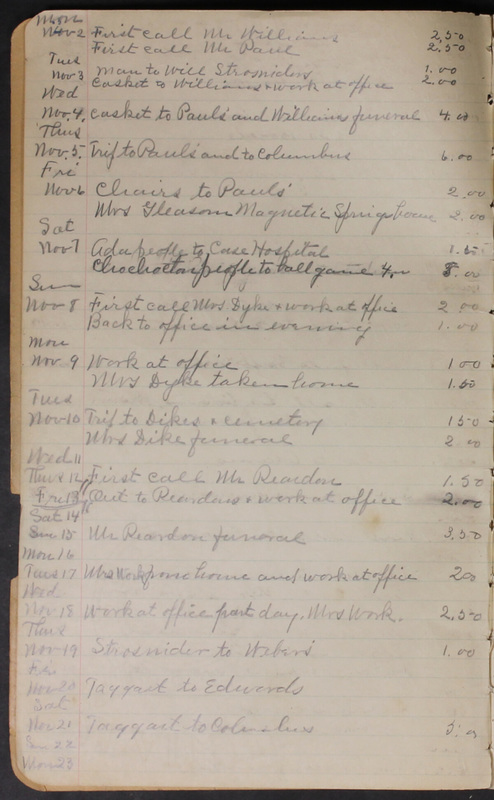 Mon
Nov 2 First call Mr Williams 2.50
First call Mr Paul 2.50
Tues
Nov 3 Man to Will Strosniders 1.00
Casket to Williams & work at office 2.00
Wed
Nov. 4. Casket to Pauls and Williams funeral 4.00
Thus
Nov. 5. Trip to Pauls and to Columbus 6.00
Fri
Nov 6 Chairs to Pauls' 2.00
Mrs Gleason Magnetic Springs home 2.00
Sat
Nov 7 Ada people to Case Hospital 1.50
people to ball game 8.00
Sun
Nov 8 First call Mrs Dyke & work at office 2 00
Back to office in evening 1.00
Mon
Nov. 9 Work at office 1 00
Mrs Dyke taken home 1.50
Tues
Nov 10 Trip to Dikes & cemetery 1 50
Mrs Dike funeral 2 00
Wed 11
Thurs 12 First call Mr Reardon 1.50
Fri 13 Out to Reardons & work at office 2.00
Sat 14
Sun 15 Mr Reardon funeral 3.50
Mon 16
Tues 17 Mrs Work home and work at office 2 00
Wed
Nov 18 Work at office part day. Mrs Work. 2.50
Thus
Nov 19 Strosnider to Webers 1.00
Fri
Nov 20 Taggart to Edwards
Sat
Nov 21 Taggart to Columbus 5.00
Sun 22
Mon 23